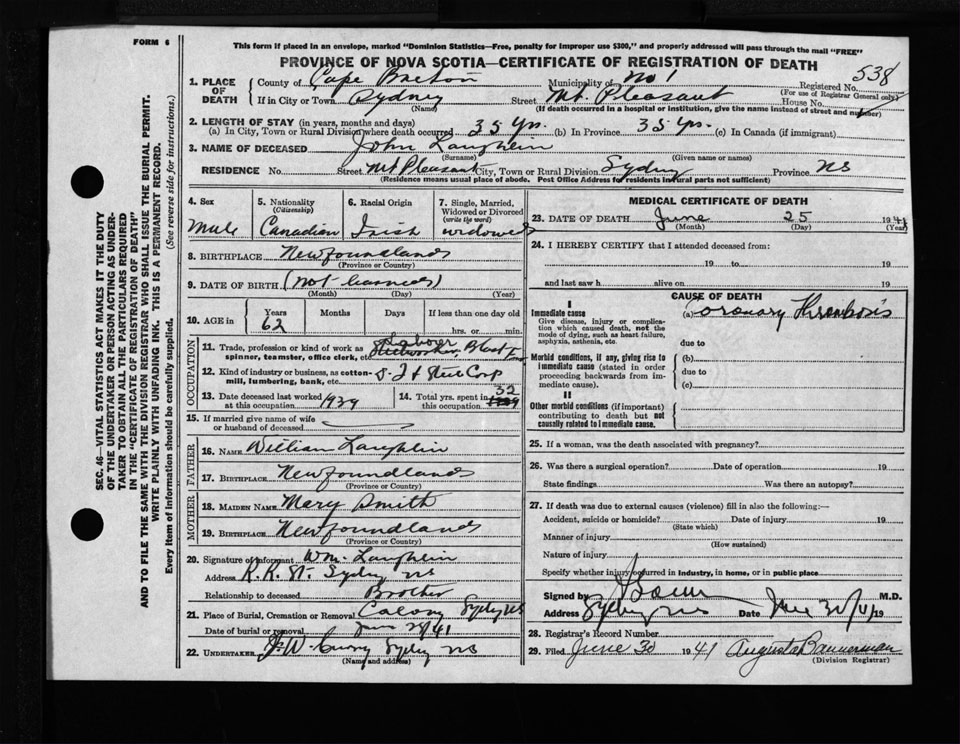 FORM 6
This form if placed in an envelope, marked "Dominion Statistics—Free, penalty for improper use $300," and properly addressed will pass through the mail "FREE"
PROVINCE OF NOVA SCOTIA—CERTIFICATE OF REGISTRATION OF DEATH
538
1. PLACE OF DEATH County of Cape Breton Municipality of No 1 Registered No.
(For use of Registrar General only)
If in City or Town Sydney Street Mt. Pleasant House No.
(Name) (If death occurred in a hospital or institution, give the name instead of street and number)
2. LENGTH OF STAY (in years, months and days)
(a) In City, Town or Rural Division where death occurred 35 Yrs. (b) In Province 35 Yrs. (c) In Canada (if immigrant)
3. NAME OF DECEASED John Laughlin
(Surname) (Given name or names)
RESIDENCE No. Street Mt Pleasant City, Town or Rural Division Sydney Province NS
(Residence means usual place of abode. Post Office Address for residents in rural parts not sufficient)
4. Sex Male
5. Nationality (Citizenship) Canadian
6. Racial Origin Irish
7. Single, Married, Widowed or Divorced (write the word) widowed
8. BIRTHPLACE Newfoundland
(Province or Country)
9. DATE OF BIRTH (not learned)
(Month) (Day) (Year)
10. AGE in Years 62 Months Days If less than one day old
hrs. or min.
OCCUPATION
11. Trade, profession or kind of work as spinner, teamster, office clerk, etc. Laborer Steelworker, Blast
12. Kind of industry or business, as cotton-mill, lumbering, bank, etc. D. I & Steel Corp
13. Date deceased last worked at this occupation 1939
14. Total yrs. spent in this occupation 32
15. If married give name of wife or husband of deceased
FATHER
16. NAME William Laughlin
17. BIRTHPLACE Newfoundland
(Province or Country)
MOTHER
18. MAIDEN NAME Mary Smith
19. BIRTHPLACE Newfoundland
(Province or Country)
20. Signature of informant Wm. Laughlin
Address R.R. St. Sydney NS
Relationship to deceased Brother
21. Place of Burial, Cremation or Removal Calony Sydney NS
Date of burial or removal June 28/41
22. UNDERTAKER Sydney NS
(Name and address)
MEDICAL CERTIFICATE OF DEATH
23. DATE OF DEATH June 25 1941
(Month) (Day) (Year)
24. I HEREBY CERTIFY that I attended deceased from:
19 to 19
and last saw h alive on 19
CAUSE OF DEATH
I
Immediate cause (a) Coronary Thrombosis
Give disease, injury or complication which caused death, not the mode of dying, such as heart failure, asphyxia, asthenia, etc.
due to
Morbid conditions, if any, giving rise to immediate cause (stated in order proceeding backwards from immediate cause).
(b)
due to
(c)
II
Other morbid conditions (if important) contributing to death but not causally related to immediate cause.
25. If a woman, was the death associated with pregnancy?
26. Was there a surgical operation? Date of operation 19
State findings Was there an autopsy?
27. If death was due to external causes (violence) fill in also the following:—
Accident, suicide or homicide? Date of injury 19
(State which)
Manner of injury
(How sustained)
Nature of injury
Specify whether injury occurred in industry, in home, or in public place
Signed by M.D.
Address Sydney NS Date June 30/41 19
28. Registrar's Record Number
29. Filed June 30 1941 Augusta Bannerman
(Division Registrar)
SEC. 46—VITAL STATISTICS ACT MAKES IT THE DUTY
OF THE UNDERTAKER OR PERSON ACTING AS UNDER-
TAKER TO OBTAIN ALL THE PARTICULARS REQUIRED
IN THE "CERTIFICATE OF REGISTRATION OF DEATH"
AND TO FILE THE SAME WITH THE DIVISION REGISTRAR WHO SHALL ISSUE THE BURIAL PERMIT.
WRITE PLAINLY WITH UNFADING INK. THIS IS A PERMANENT RECORD.
Every item of Information should be carefully supplied. (See reverse side for instructions.)